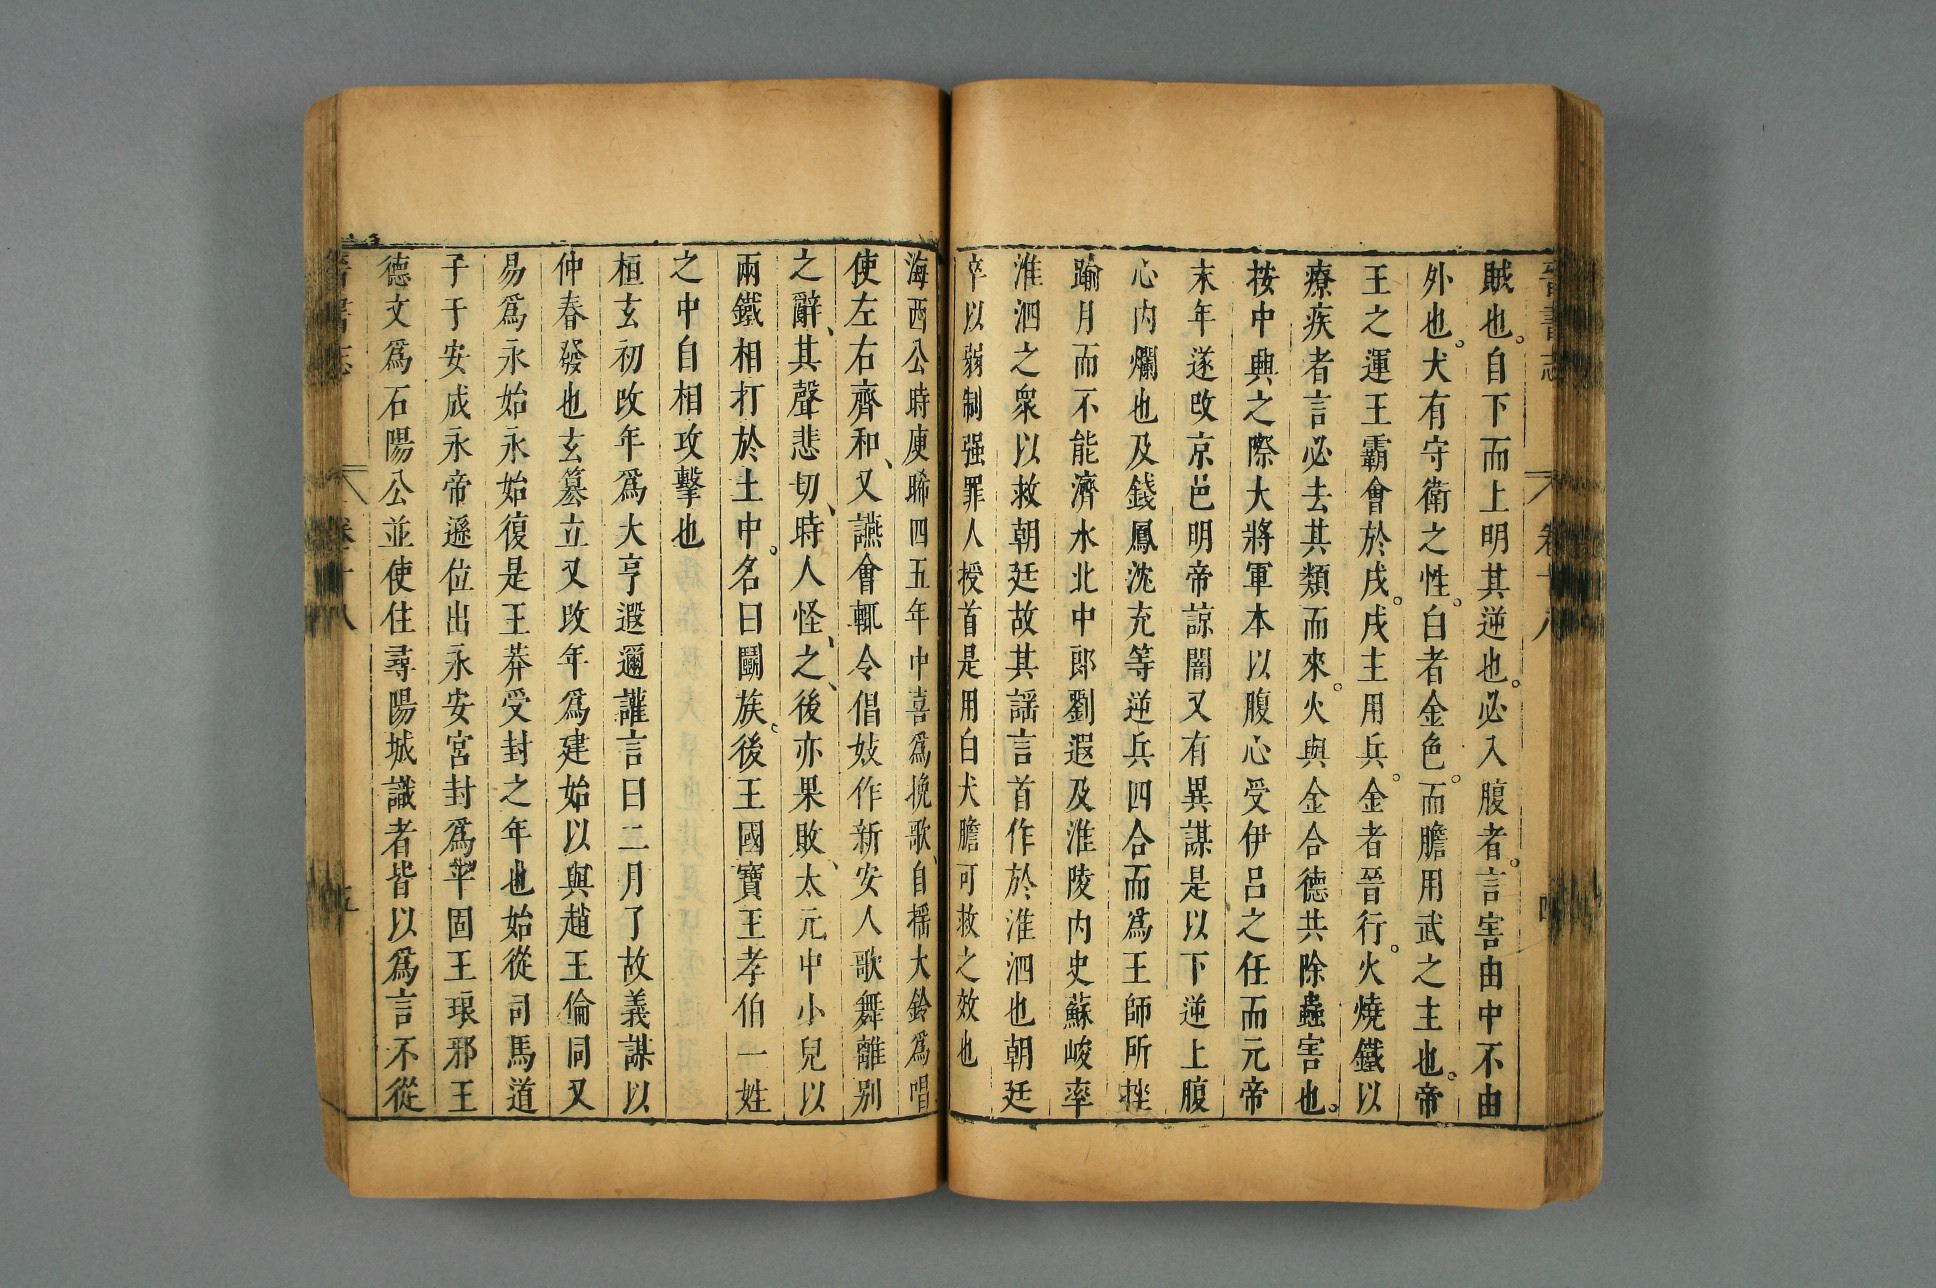 晉書志
卷十八
賊也。自下而上明其逆也。必入腹者。言害由中不由
外也。犬有守衛之性。白者金色。而膽用武之主也。帝
王之運王霸會於戌。戌主用兵。金者晉行。火燒鐵以
療疾者言必去其類而來。火與金合德共除蟲害也。
按中興之際大將軍本以腹心受伊呂之任而元帝
末年遂改京邑明帝諒闇又有異謀是以下逆上腹
心內爛也及錢鳳沈充等逆兵四合而爲王師所挫
踰月而不能濟水北中郎劉遐及淮陵內史蘇峻率
淮泗之衆以救朝廷故其謡言首作於淮泗也朝廷
卒以弱制强罪人授首是用白犬膽可救之效也
海西公時庾晞四五年中喜爲挽歌、自摇大鈴爲唱
使左右齊和、又讌會輒令倡妓作新安人歌舞離别
之辭、其聲悲切、時人怪、之、後亦果敗、太元中小兒以
兩鐵相打於土中。名曰鬭族。後王國寶王孝伯一姓
之中自相攻擊也
桓玄初改年爲大亨遐邇讙言曰二月了故義謀以
仲春發也玄簒立又改年爲建始以與趙王倫同又
易爲永始永始復是王莽受封之年也始從司馬道
子于安成永帝遜位出永安宮封爲平固王琅邪王
德文爲石陽公並使住尋陽城識者皆以爲言不從
晉書志
卷十八
五